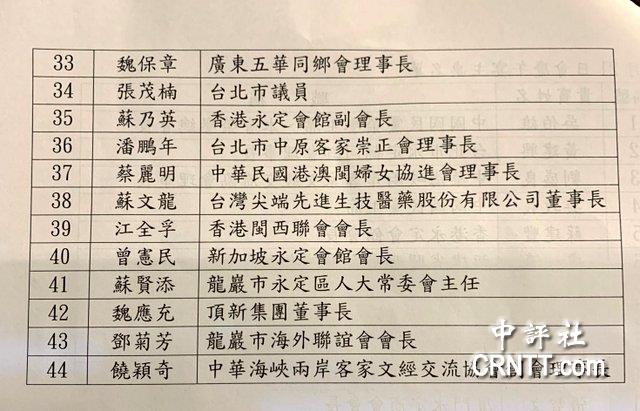 33 魏保章 廣東五華同鄉會理事長
34 張茂楠 台北市議員
35 蘇乃英 香港永定會館副會長
36 潘鵬年 台北市中原客家崇正會理事長
37 蔡麗明 中華民國港澳閩婦女協進會理事長
38 蘇文龍 台灣尖端先進生技醫藥股份有限公司董事長
39 江全孚 香港閩西聯會會長
40 曾憲民 新加坡永定會館會長
41 蘇賢添 龍巖市永定區人大常委會主任
42 魏應充 頂新集團董事長
43 鄧菊芳 龍巖市海外聯誼會會長
44 饒穎奇 中華海峽兩岸客家文經交流協會
中評社
CRNTT.com